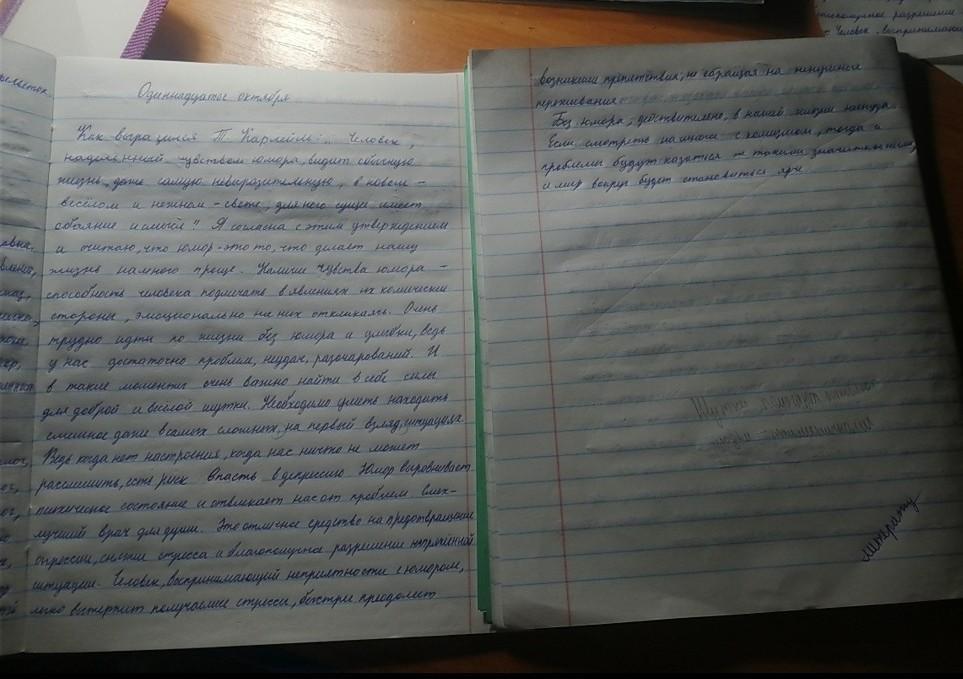 Одиннадцатое октября
Как выразился Т. Карлейль: „Человек,
наделённый чувством юмора, видит обычную
жизнь, даже самую невыразительную, в новом –
весёлом и нежном – свете, для него сущее имеет
обаяние и смысл". Я согласна с этим утверждением
и считаю, что юмор - это то, что делает нашу
жизнь намного проще. Наличие чувства юмора –
способность человека подмечать в явлениях их комические
стороны, эмоционально на них откликаясь. Очень
трудно идти по жизни без юмора и улыбки, ведь
у нас достаточно проблем, неудач, разочарований. И
в такие моменты очень важно найти в себе силы
для доброй и весёлой шутки. Необходимо уметь находить
смешное даже в самых сложных, на первый взгляд, ситуациях.
Ведь когда нет настроения, когда нас ничто не может
рассмешить, есть риск впасть в депрессию. Юмор выровнивает
психическое состояние и отвлекает нас от проблем. Смех –
лучший врач для души. Это отличное средство на предотвращение
депрессии, снятие стресса и благополучное разрешение напряжённой
ситуации. Человек, воспринимающий неприятности с юмором,
легко вытерпит получаемые стрессы, быстрее преодолеет
возникшие препятствия, не обращая на ненужные
переживания
Без юмора, действительно, в нашей жизни никуда.
Если смотреть на многое с комизмом, тогда и
проблемы будут казаться не такими значительными,
и мир вокруг будет становиться ярче.
Шутки помогают
людям
литерату
благополучное разрешение
Человек, воспринимающий